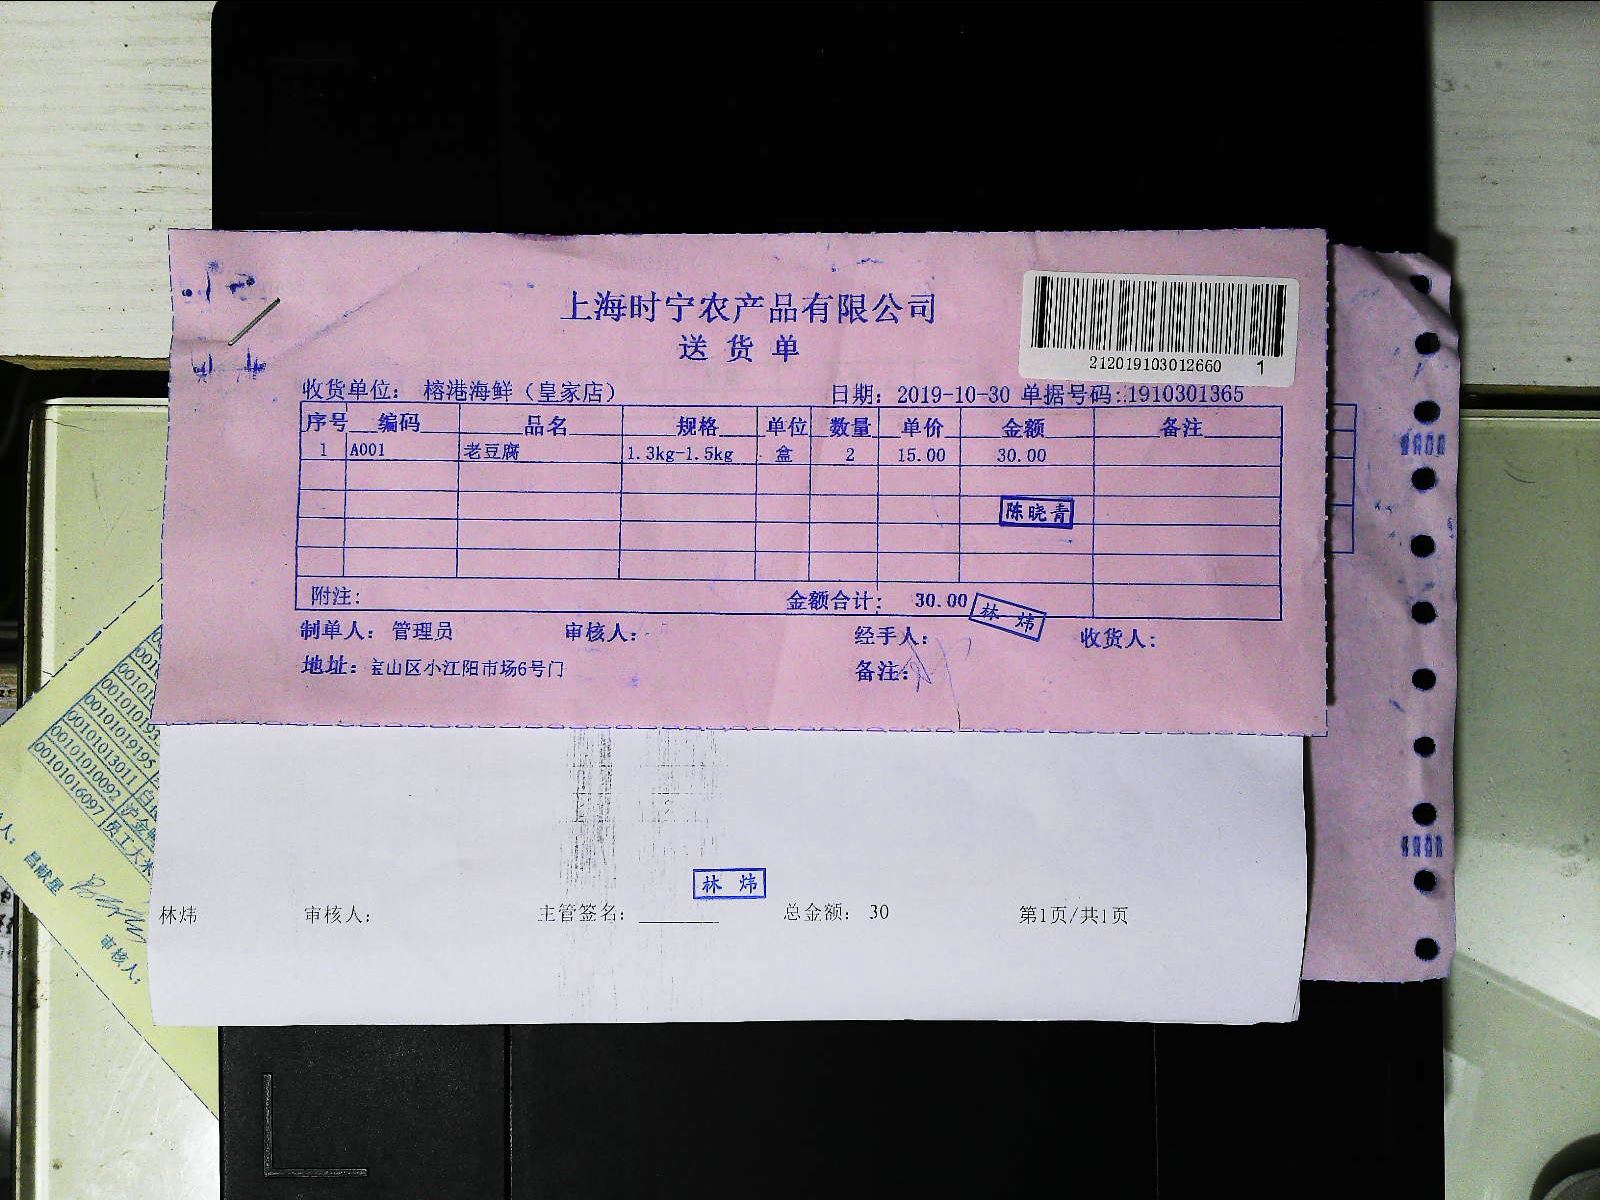 上海时宁农产品有限公司
送货单
212019103012660 1
收货单位: 榕港海鲜（皇家店） 日期: 2019-10-30 单据号码:1910301365
序号 编码 品名 规格 单位 数量 单价 金额 备注
1 A001 老豆腐 1.3kg-1.5kg 盒 2 15.00 30.00
陈晓青
附注: 金额合计: 30.00
林 炜
制单人: 管理员 审核人: 经手人: 收货人:
地址: 宝山区小江阳市场6号门 备注:
林 炜
林炜 审核人: 主管签名: 总金额: 30 第1页/共1页
0010101919
00101019195
00101013011
00101010092
00101016097 员工大米
审核人: